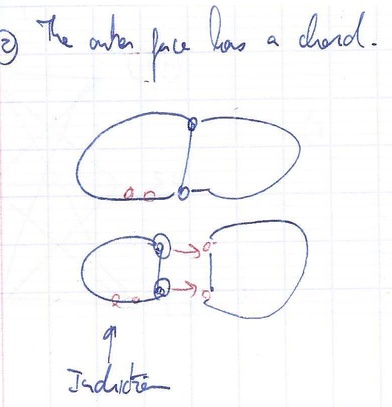 ② The outer face has a chord.
Induction